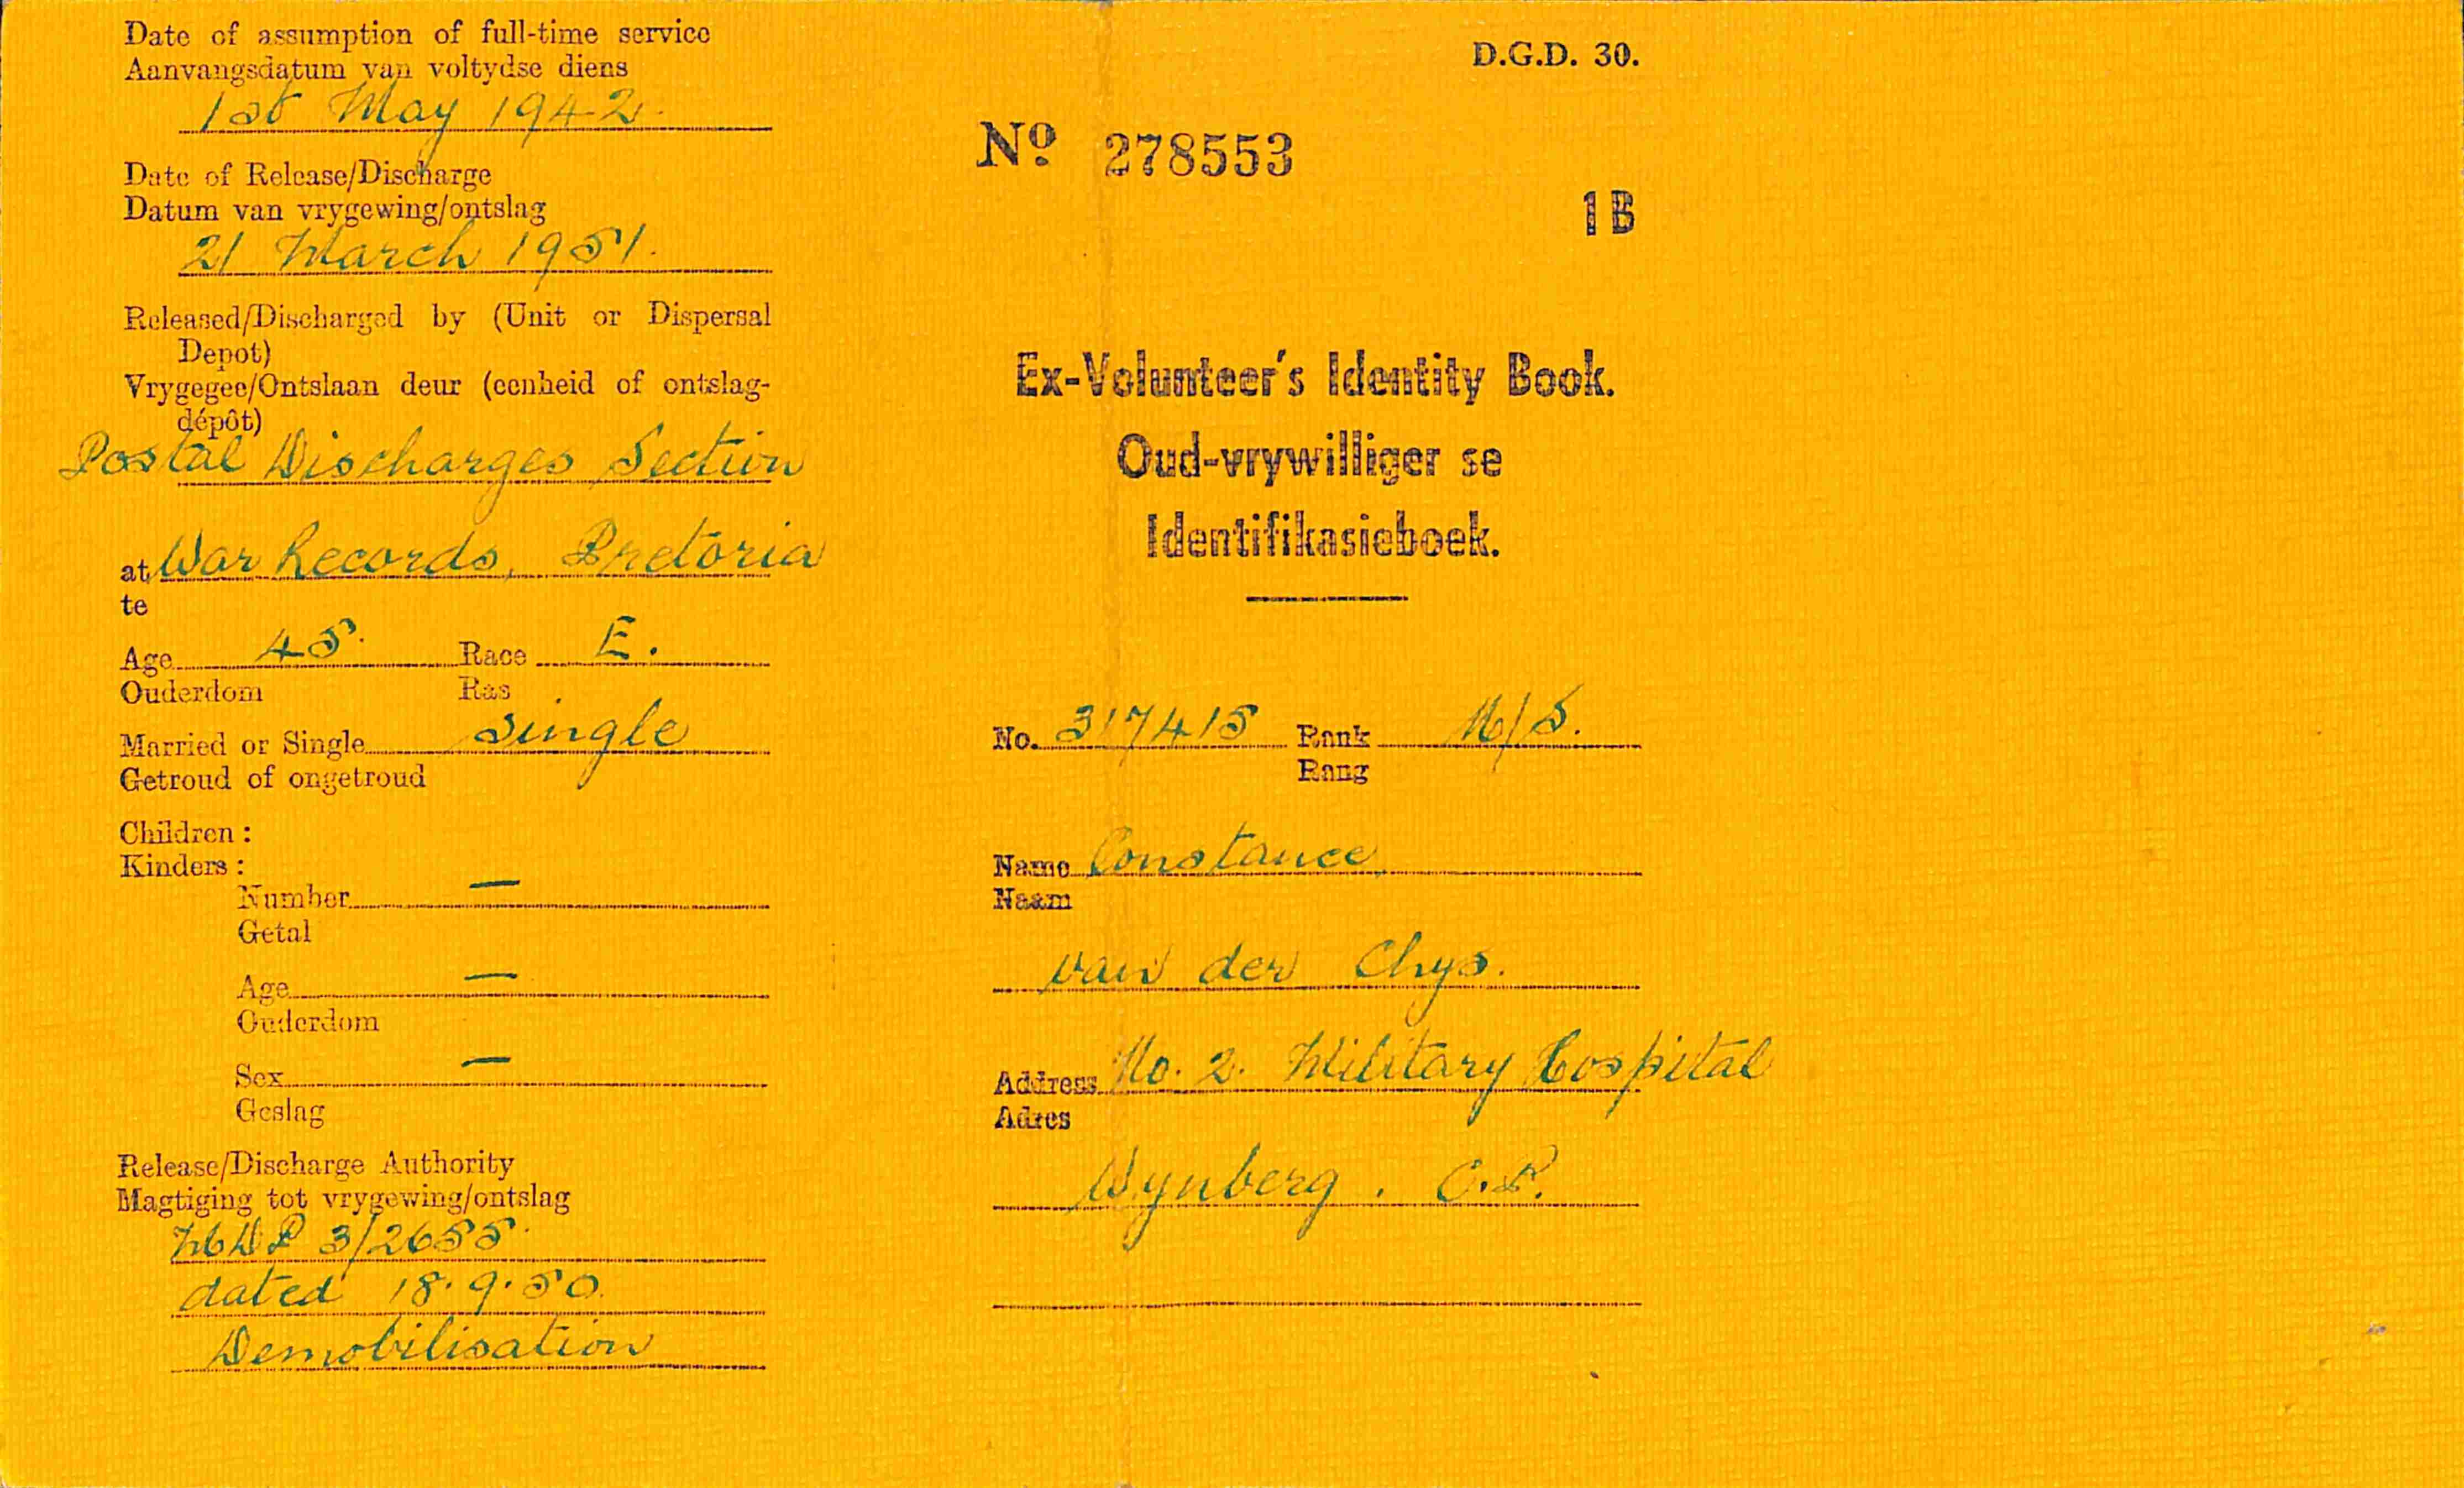 Date of assumption of full-time service
Aanvangsdatum van voltydse diens
1st May 1942.
Date of Release/Discharge
Datum van vrygewing/ontslag
21 March 1951.
Released/Discharged by (Unit or Dispersal
Depot)
Vrygegee/Ontslaan deur (eenheid of ontslag-
dépôt)
Postal Discharges Section
at War Records, Pretoria
te
Age 45. Race E.
Ouderdom Ras
Married or Single single
Getroud of ongetroud
Children :
Kinders :
Number —
Getal
Age —
Ouderdom
Sex —
Geslag
Release/Discharge Authority
Magtiging tot vrygewing/ontslag
3/2655.
dated 18.9.50.
Demobilisation
D.G.D. 30.
No. 278553
1B
Ex-Volunteer's Identity Book.
Oud-vrywilliger se
Identifikasieboek.
No. 317415 Rank
Rang
Name Constance,
Naam
van der Chys.
Address No. 2. Military Hospital
Adres
Wynberg. C.P.